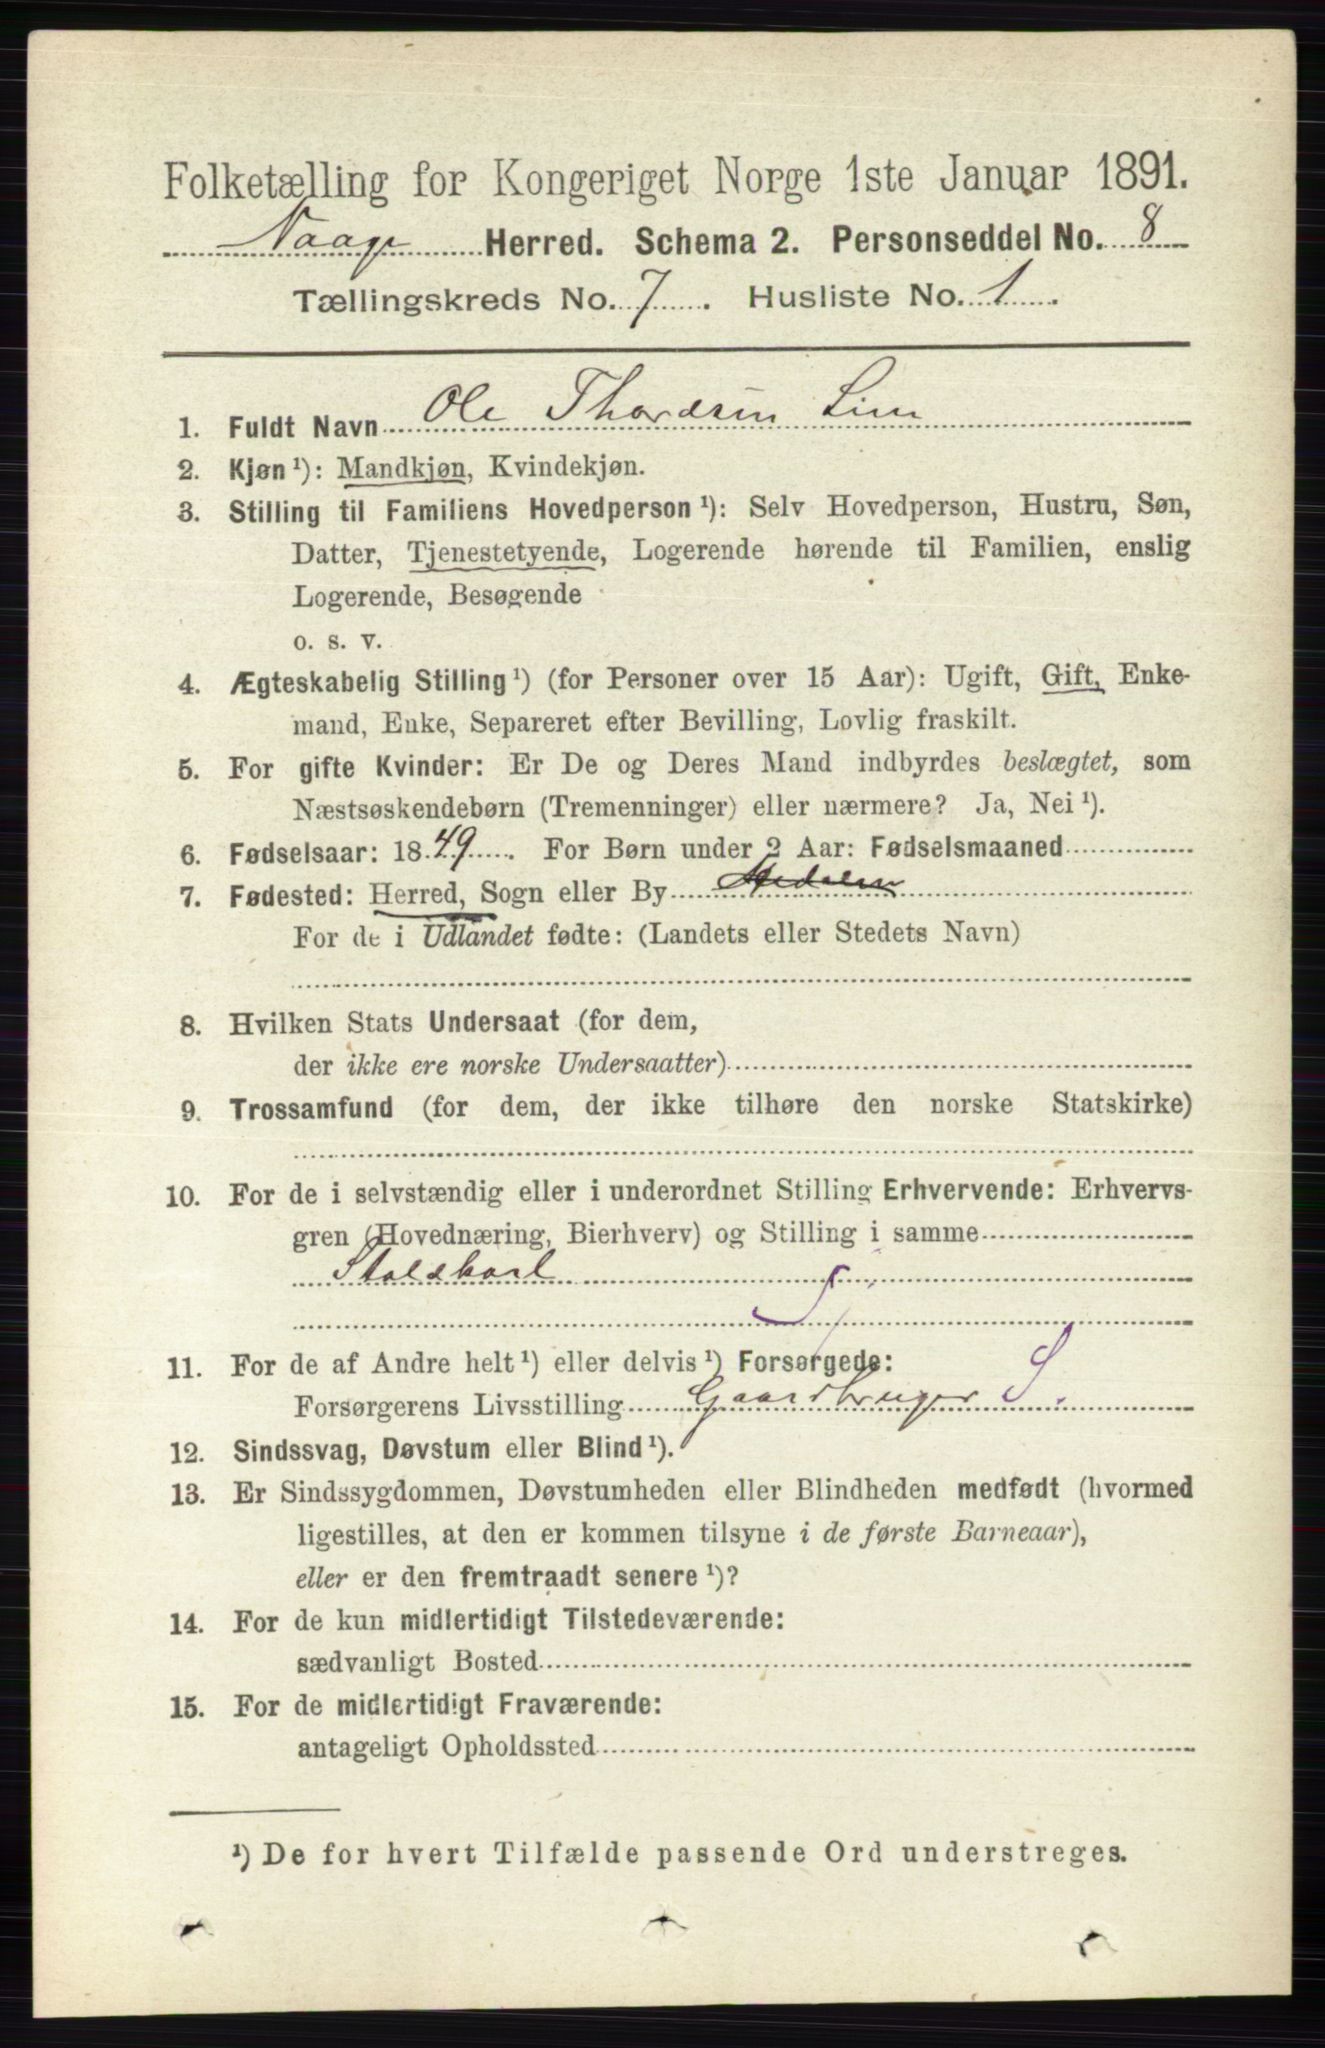 Folketælling for Kongeriget Norge 1ste Januar 1891.
Vaage Herred. Schema 2. Personseddel No. 8
Tællingskreds No. 7. Husliste No. 1.
1. Fuldt Navn Ole Thordsen Lien
2. Kjøn ¹): Mandkjøn, Kvindekjøn.
3. Stilling til Familiens Hovedperson ¹): Selv Hovedperson, Hustru, Søn,
Datter, Tjenestetyende, Logerende hørende til Familien, enslig
Logerende, Besøgende
o. s. v.
4. Ægteskabelig Stilling ¹) (for Personer over 15 Aar): Ugift, Gift, Enke-
mand, Enke, Separeret efter Bevilling, Lovlig fraskilt.
5. For gifte Kvinder: Er De og Deres Mand indbyrdes beslægtet, som
Næstsøskendebørn (Tremenninger) eller nærmere? Ja, Nei ¹).
6. Fødselsaar: 1849. For Børn under 2 Aar: Fødselsmaaned
7. Fødested: Herred, Sogn eller By
For de i Udlandet fødte: (Landets eller Stedets Navn)
8. Hvilken Stats Undersaat (for dem,
der ikke ere norske Undersaatter)
9. Trossamfund (for dem, der ikke tilhøre den norske Statskirke)
10. For de i selvstændig eller i underordnet Stilling Erhvervende: Erhvervs-
gren (Hovednæring, Bierhverv) og Stilling i samme
Staldkarl
11. For de af Andre helt ¹) eller delvis ¹) Forsørgede:
Forsørgerens Livsstilling Gaardbruger S.
12. Sindssvag, Døvstum eller Blind ¹).
13. Er Sindssygdommen, Døvstumheden eller Blindheden medfødt (hvormed
ligestilles, at den er kommen tilsyne i de første Barneaar),
eller er den fremtraadt senere ¹)?
14. For de kun midlertidigt Tilstedeværende:
sædvanligt Bosted
15. For de midlertidigt Fraværende:
antageligt Opholdssted
¹) De for hvert Tilfælde passende Ord understreges.